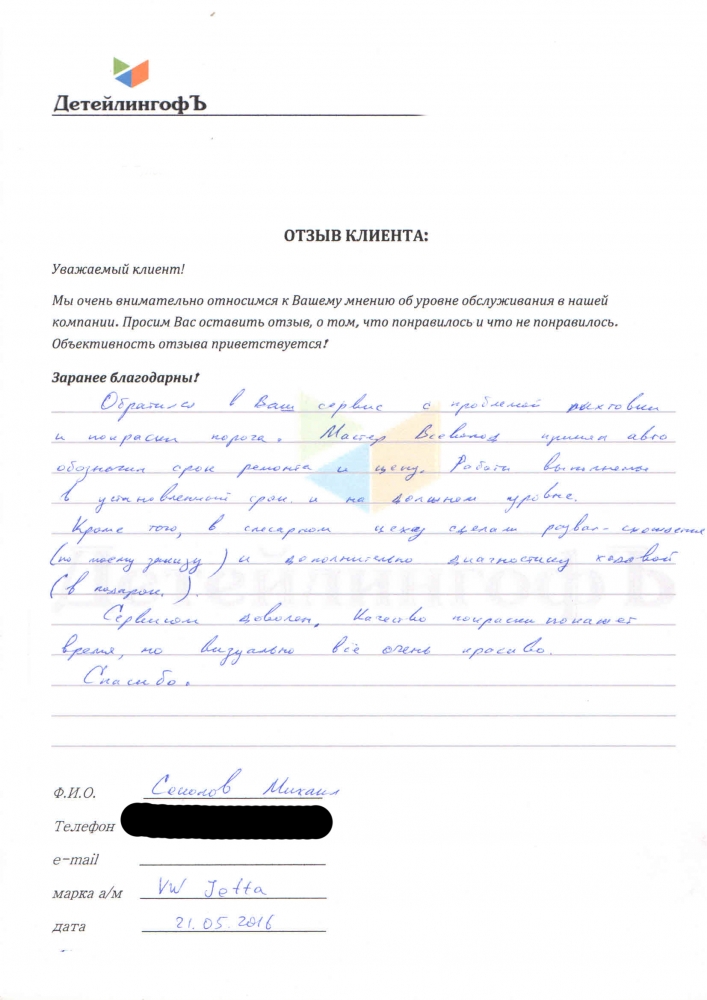 ДетейлингофЪ
ОТЗЫВ КЛИЕНТА:
Уважаемый клиент!
Мы очень внимательно относимся к Вашему мнению об уровне обслуживания в нашей
компании. Просим Вас оставить отзыв, о том, что понравилось и что не понравилось.
Объективность отзыва приветствуется!
Заранее благодарны!
Обратился в Ваш сервис с проблемой рихтовки
и покраски порога. Мастер Всеволод принял авто
обозначил срок ремонта и цену. Работы выполнены
в установленный срок и на должном уровне.
Кроме того, в слесарном цеху сделали развал-схождение
(по моему заказу) и дополнительно диагностику ходовой
(в подарок.).
Сервисом доволен. Качество покраски покажет
время, но визуально всё очень красиво.
Спасибо.
Ф.И.О. Соколов Михаил
Телефон
e-mail
марка а/м VW Jetta
дата 21.05.2016